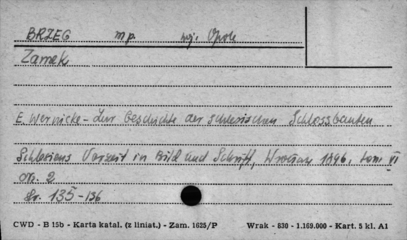 BRZEG mp. woj. Opole
Zamek
E. Wernicke - Zur Geschichte der schlesischen Schlossbauten
Schlesiens Vorzeit in Bild und Schrift, Wrocław 1896, tom VI
nr. 2
str. 135-136
CWD - B 15b - Karta katal. (z liniat.) - Zam. 1625/P Wrak - 830 - 1.169.000 - Kart. 5 kl. A1